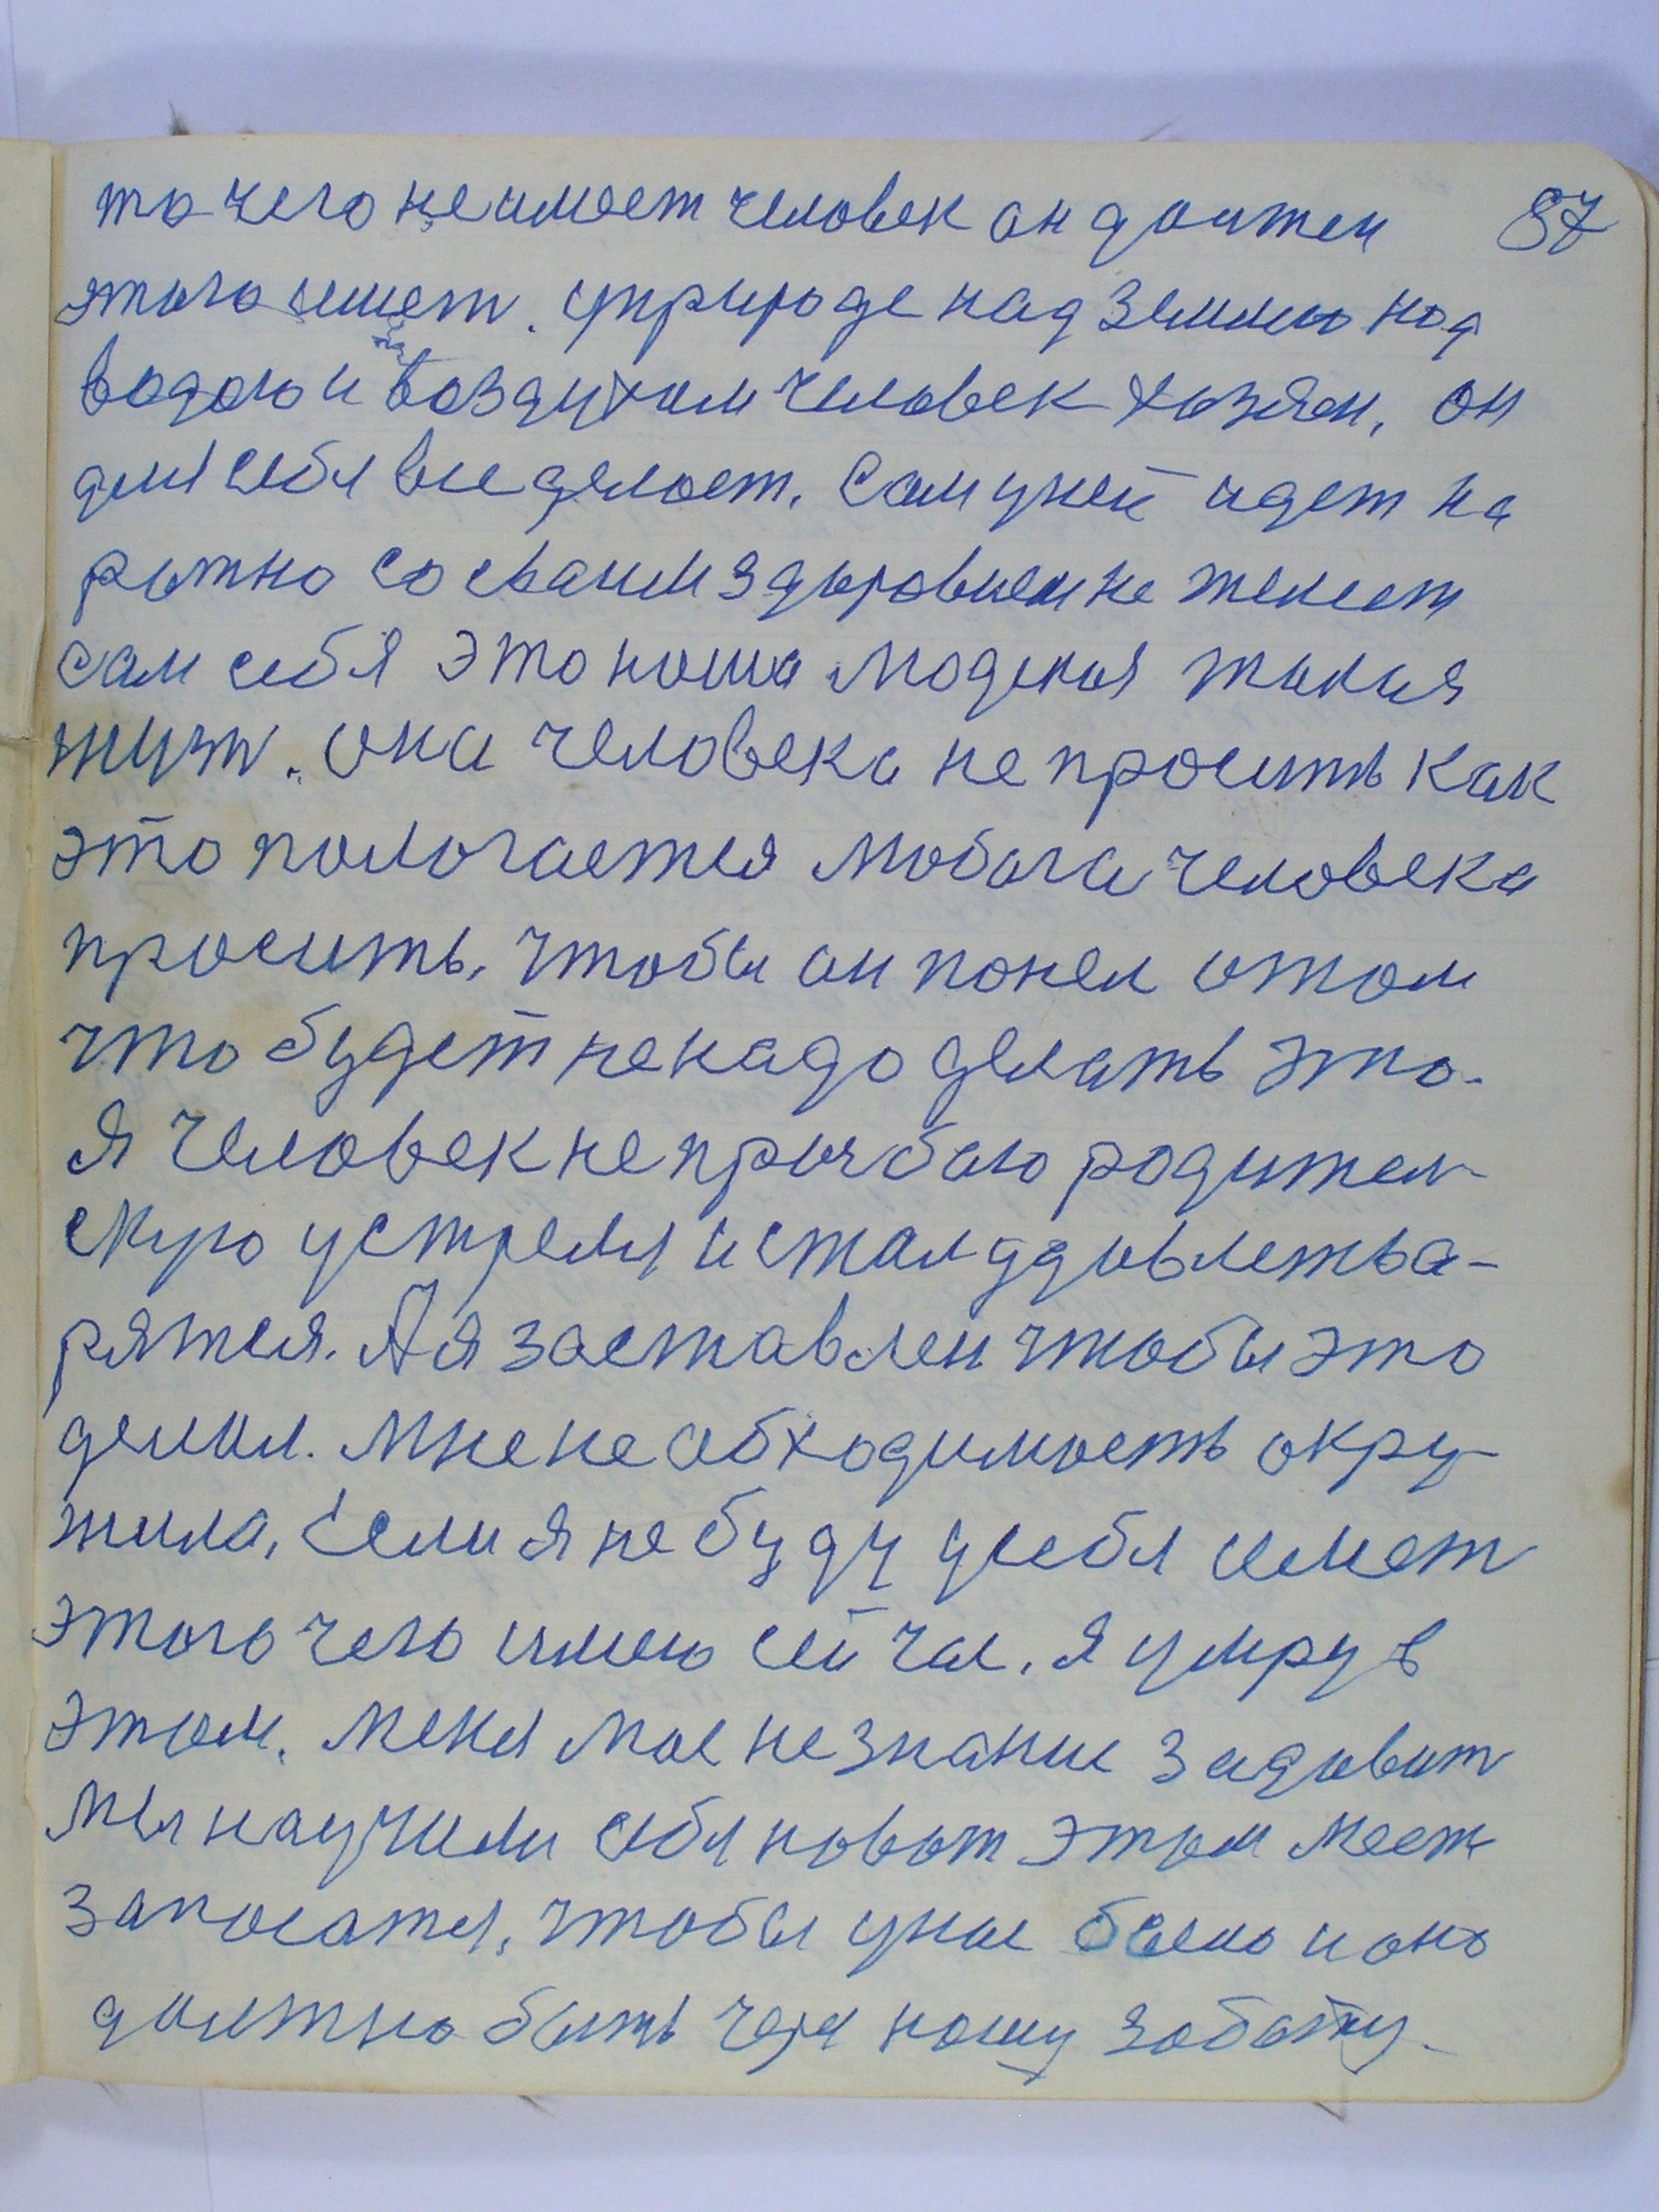 то чего не имеет человек он должен 87
этого имет. у природе над землею над
водою и над воздухом человек хозяен. он
для себя все делает. Сам у ней идет на
рожно со своим здоровием не жалеет
сам себя это наша людская такая
жизт. она человека не просить как
это пологается любога человека
просить, чтобы он понел отом
что будет не надо делать это.
Я человек не прычбаю родител-
скую устремля и стал удовлетва-
рятся. А я заставлен чтобы это
делал. Мне не обходимость окру-
жила, Если я не буду у себя имет
этого чего имею сейчас, я умру в
этом. Меня мое не знание задавит
Мы научили себя на вот этом месте
запосатся, чтобы у нас было и оно
должно быть через нашу заботу.